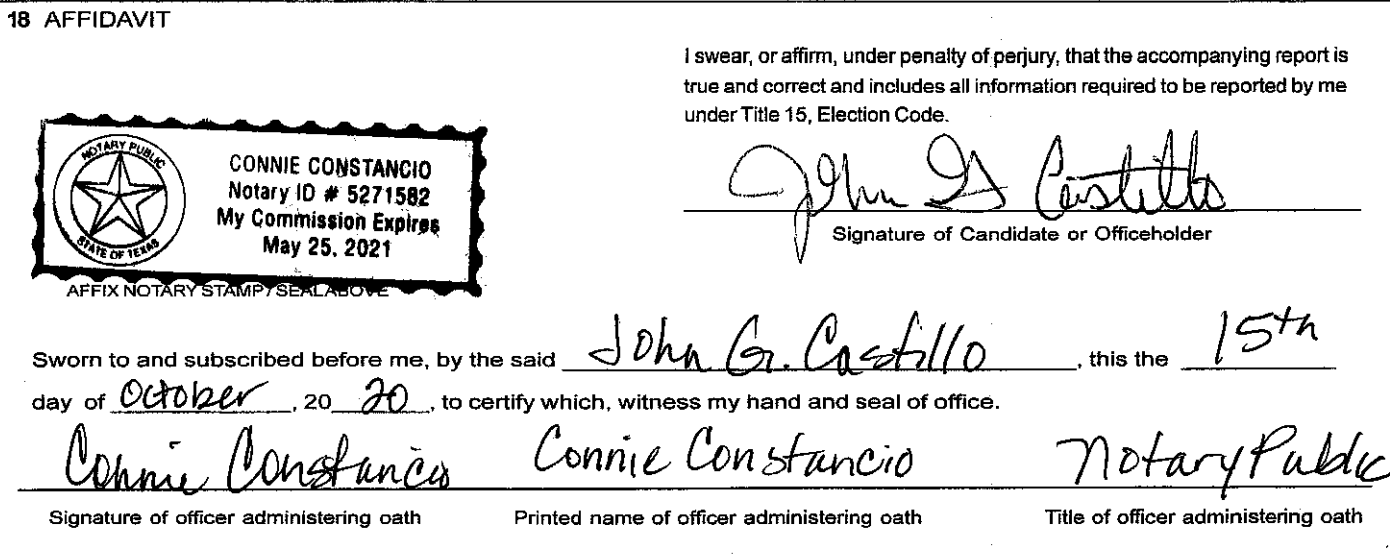 18 AFFIDAVIT
I swear, or affirm, under penalty of perjury, that the accompanying report is
true and correct and includes all information required to be reported by me
under Title 15, Election Code.
NOTARY PUBLIC
STATE OF TEXAS
CONNIE CONSTANCIO
Notary ID # 5271582
My Commission Expires
May 25, 2021
John G Castillo
Signature of Candidate or Officeholder
AFFIX NOTARY STAMP / SEAL ABOVE
Sworn to and subscribed before me, by the said John G. Castillo, this the 15th
day of October, 20 20, to certify which, witness my hand and seal of office.
Connie Constancio Connie Constancio Notary Public
Signature of officer administering oath Printed name of officer administering oath Title of officer administering oath